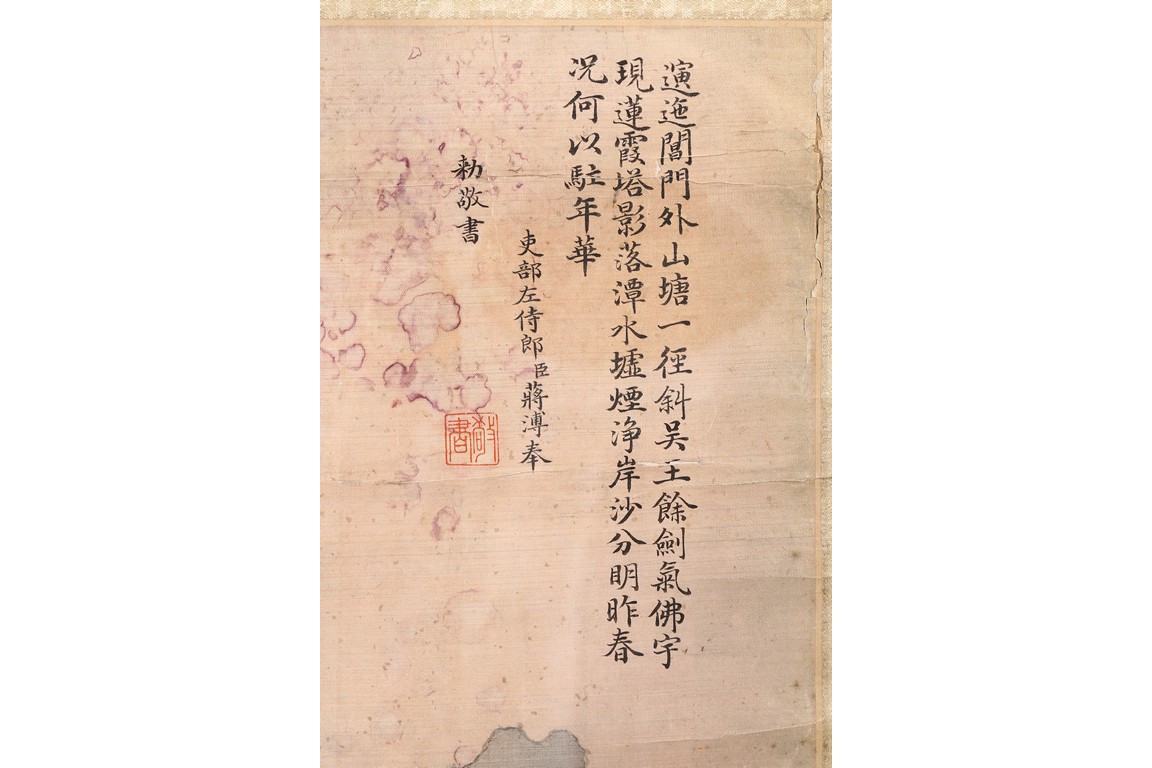 演迤閶門外山塘一徑斜吴王餘劍氣佛宇
現蓮霞塔影落潭水墟煙浄岸沙分明昨春
况何以駐年華
吏部左侍郎臣蔣溥奉
勅敬書
敬書